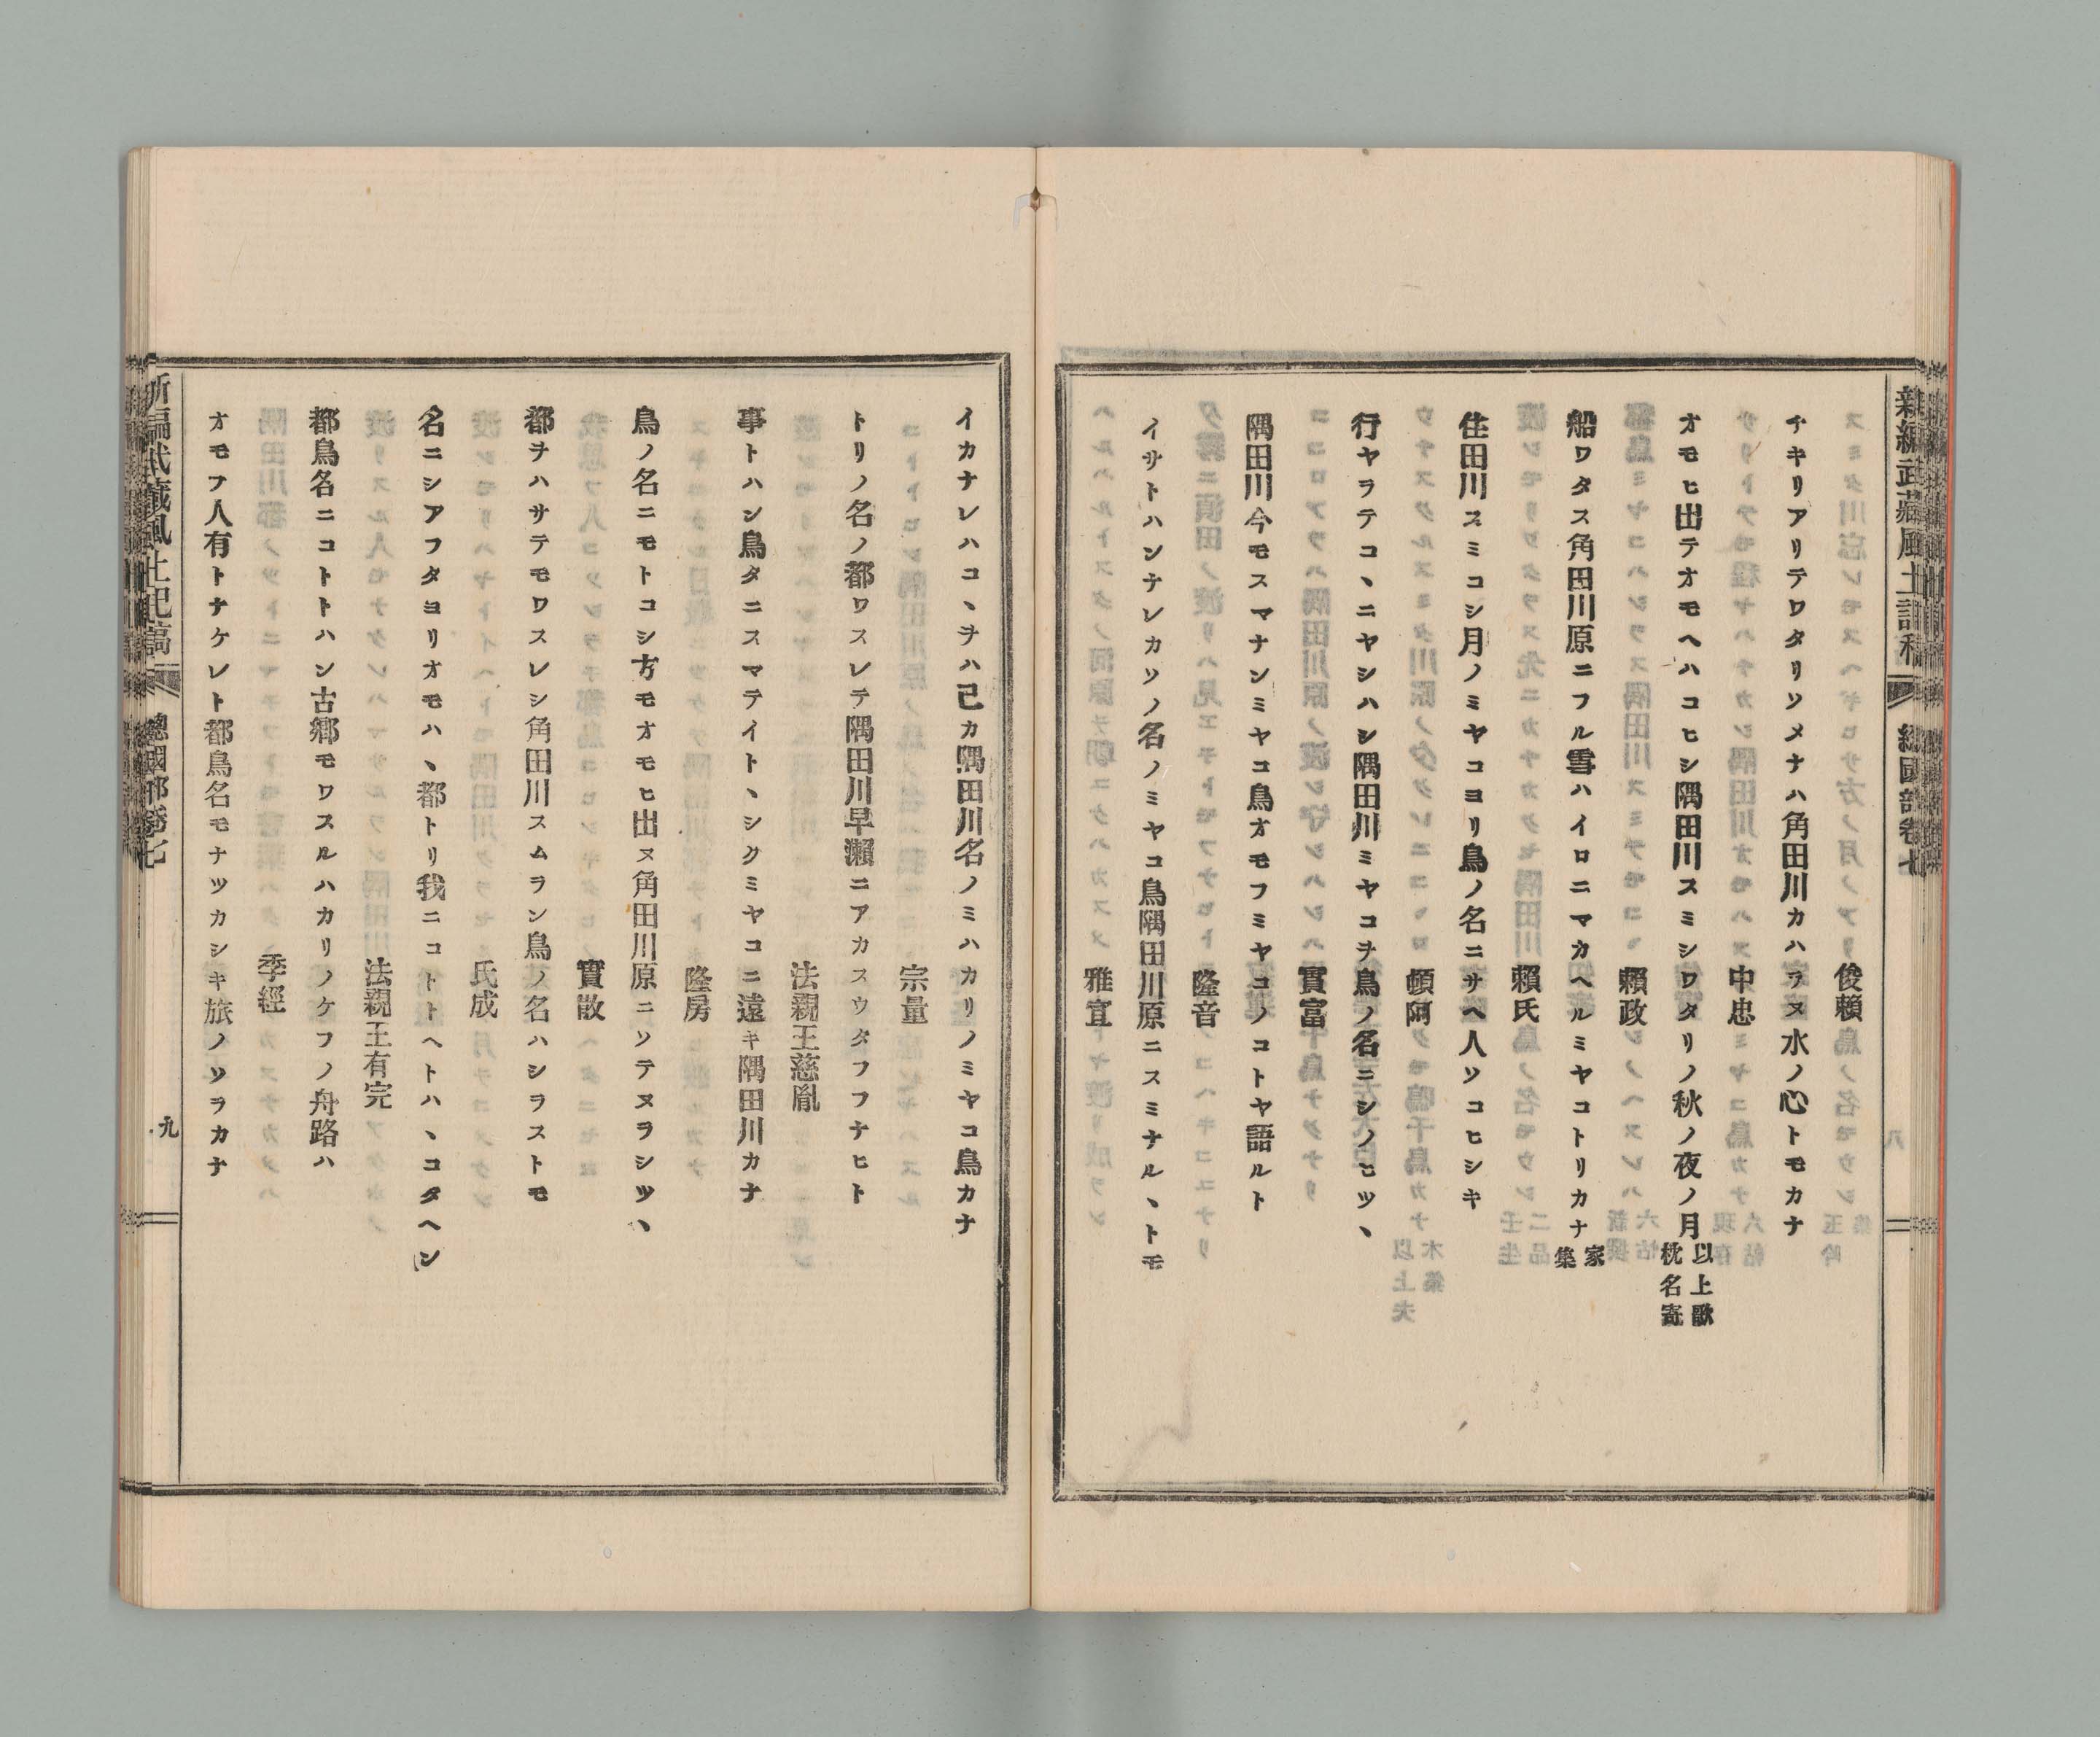 新編武藏風土記稿　總國部卷七
俊頼
チキリアリテワタリソメナハ角田川カハラヌ水ノ心トモカナ
中忠
オモヒ出テオモヘハコヒシ隅田川スミシワタリノ秋ノ夜ノ月 以上歌枕名寄
頼政
船ワタス角田川原ニフル雪ハイロニマカヘルミヤコトリカナ 家集
頼氏
住田川スミコシ月ノミヤコヨリ鳥ノ名ニサヘ人ソコヒシキ
頓阿
行ヤラテコヽニヤシハシ隅田川ミヤコヲ鳥ノ名ニシノヒツヽ
實富
隅田川今モスマナンミヤコ鳥オモフミヤコノコトヤ語ルト
隆音
イサトハンナレカソノ名ノミヤコ鳥隅田川原ニスミナルヽトモ
雅宜
イカナレハコヽヲハ己カ隅田川名ノミハカリノミヤコ鳥カナ
宗量
トリノ名ノ都ワスレテ隅田川早瀬ニアカスウタフフナヒト
法親王慈胤
事トハン鳥タニスマテイトヽシクミヤコニ遠キ隅田川カナ
隆房
鳥ノ名ニモトコシ方モオモヒ出ヌ角田川原ニソテヌラシツヽ
實散
都ヲハサテモワスレシ角田川スムラン鳥ノ名ハシラストモ
氏成
名ニシアフタヨリオモハヽ都トリ我ニコトトヘトハヽコタヘン
法親王有完
都鳥名ニコトトハン古郷モワスルハカリノケフノ舟路ハ
季經
オモフ人有トナケレト都鳥名モナツカシキ旅ノソラカナ
新編武藏風土記稿　總國部卷七　九